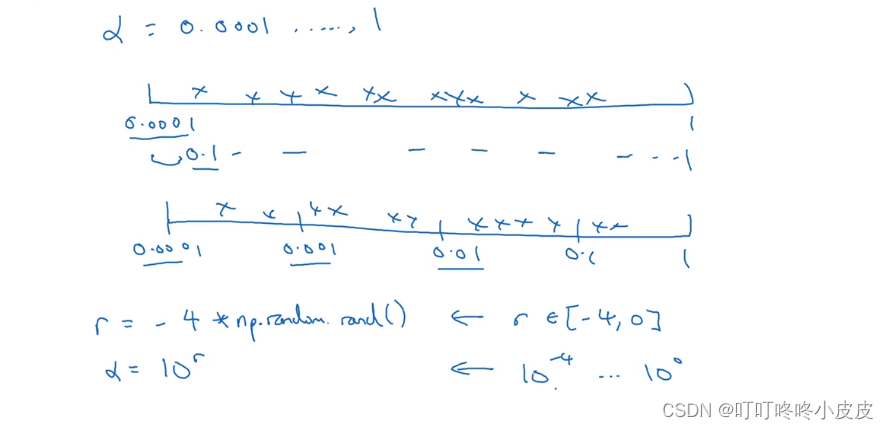 α = 0.0001 ....., 1
0.0001 1
0.1 - - - - - - - - 1
0.0001 0.001 0.01 0.1 1
r = - 4 * np.random.rand() ← r ∈ [-4, 0]
α = 10^r ← 10^-4 ... 10^0
CSDN @叮叮咚咚小皮皮